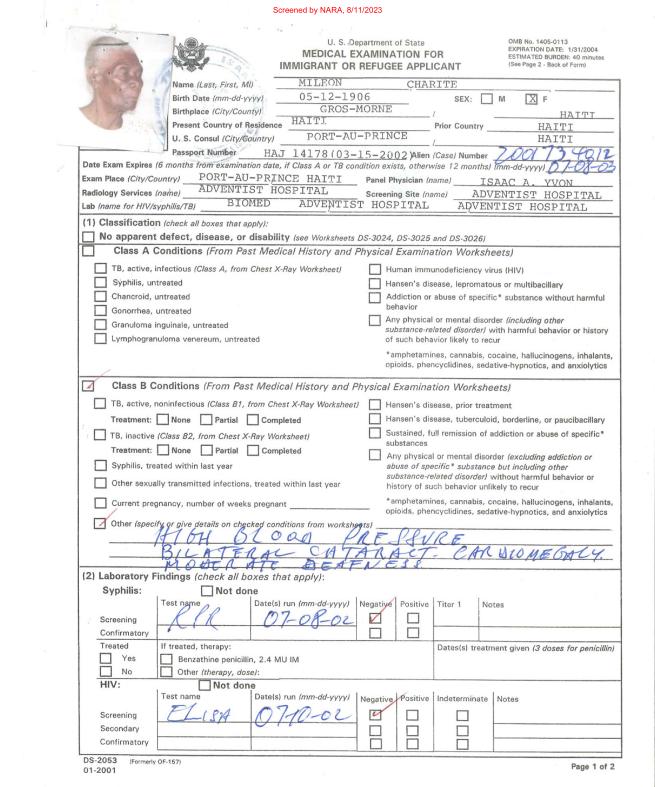 Screened by NARA, 8/11/2023
U. S. Department of State
MEDICAL EXAMINATION FOR
IMMIGRANT OR REFUGEE APPLICANT
OMB No. 1405-0113
EXPIRATION DATE: 1/31/2004
ESTIMATED BURDEN: 40 minutes
(See Page 2 - Back of Form)
Name (Last, First, MI) MILEON CHARITE
Birth Date (mm-dd-yyyy) 05-12-1906 SEX: M X F
Birthplace (City/Country) GROS-MORNE / HAITI
Present Country of Residence HAITI Prior Country HAITI
U. S. Consul (City/Country) PORT-AU-PRINCE / HAITI
Passport Number HAJ 14178(03-15-2002) Alien (Case) Number
Date Exam Expires (6 months from examination date, if Class A or TB condition exists, otherwise 12 months) (mm-dd-yyyy) 07-08-03
Exam Place (City/Country) PORT-AU-PRINCE HAITI Panel Physician (name) ISAAC A. YVON
Radiology Services (name) ADVENTIST HOSPITAL Screening Site (name) ADVENTIST HOSPITAL
Lab (name for HIV/syphilis/TB) BIOMED ADVENTIST HOSPITAL ADVENTIST HOSPITAL
(1) Classification (check all boxes that apply):
No apparent defect, disease, or disability (see Worksheets DS-3024, DS-3025 and DS-3026)
Class A Conditions (From Past Medical History and Physical Examination Worksheets)
TB, active, infectious (Class A, from Chest X-Ray Worksheet)
Syphilis, untreated
Chancroid, untreated
Gonorrhea, untreated
Granuloma inguinale, untreated
Lymphogranuloma venereum, untreated
Human immunodeficiency virus (HIV)
Hansen's disease, lepromatous or multibacillary
Addiction or abuse of specific* substance without harmful
behavior
Any physical or mental disorder (including other
substance-related disorder) with harmful behavior or history
of such behavior likely to recur
*amphetamines, cannabis, cocaine, hallucinogens, inhalants,
opioids, phencyclidines, sedative-hypnotics, and anxiolytics
Class B Conditions (From Past Medical History and Physical Examination Worksheets)
TB, active, noninfectious (Class B1, from Chest X-Ray Worksheet)
Treatment: None Partial Completed
TB, inactive (Class B2, from Chest X-Ray Worksheet)
Treatment: None Partial Completed
Syphilis, treated within last year
Other sexually transmitted infections, treated within last year
Current pregnancy, number of weeks pregnant
Hansen's disease, prior treatment
Hansen's disease, tuberculoid, borderline, or paucibacillary
Sustained, full remission of addiction or abuse of specific*
substances
Any physical or mental disorder (excluding addiction or
abuse of specific* substance but including other
substance-related disorder) without harmful behavior or
history of such behavior unlikely to recur
*amphetamines, cannabis, cocaine, hallucinogens, inhalants,
opioids, phencyclidines, sedative-hypnotics, and anxiolytics
Other (specify or give details on checked conditions from worksheets)
HIGH BLOOD PRESSURE
BILATERAL CATARACT. CARDIOMEGALY.
MODERATE DEAFNESS
(2) Laboratory Findings (check all boxes that apply):
Syphilis: Not done
Test name Date(s) run (mm-dd-yyyy) Negative Positive Titer 1 Notes
Screening RPR 07-08-02
Confirmatory
Treated If treated, therapy: Dates(s) treatment given (3 doses for penicillin)
Yes Benzathine penicillin, 2.4 MU IM
No Other (therapy, dose):
HIV: Not done
Test name Date(s) run (mm-dd-yyyy) Negative Positive Indeterminate Notes
Screening ELISA 07-10-02
Secondary
Confirmatory
DS-2053 (Formerly OF-157)
01-2001
Page 1 of 2